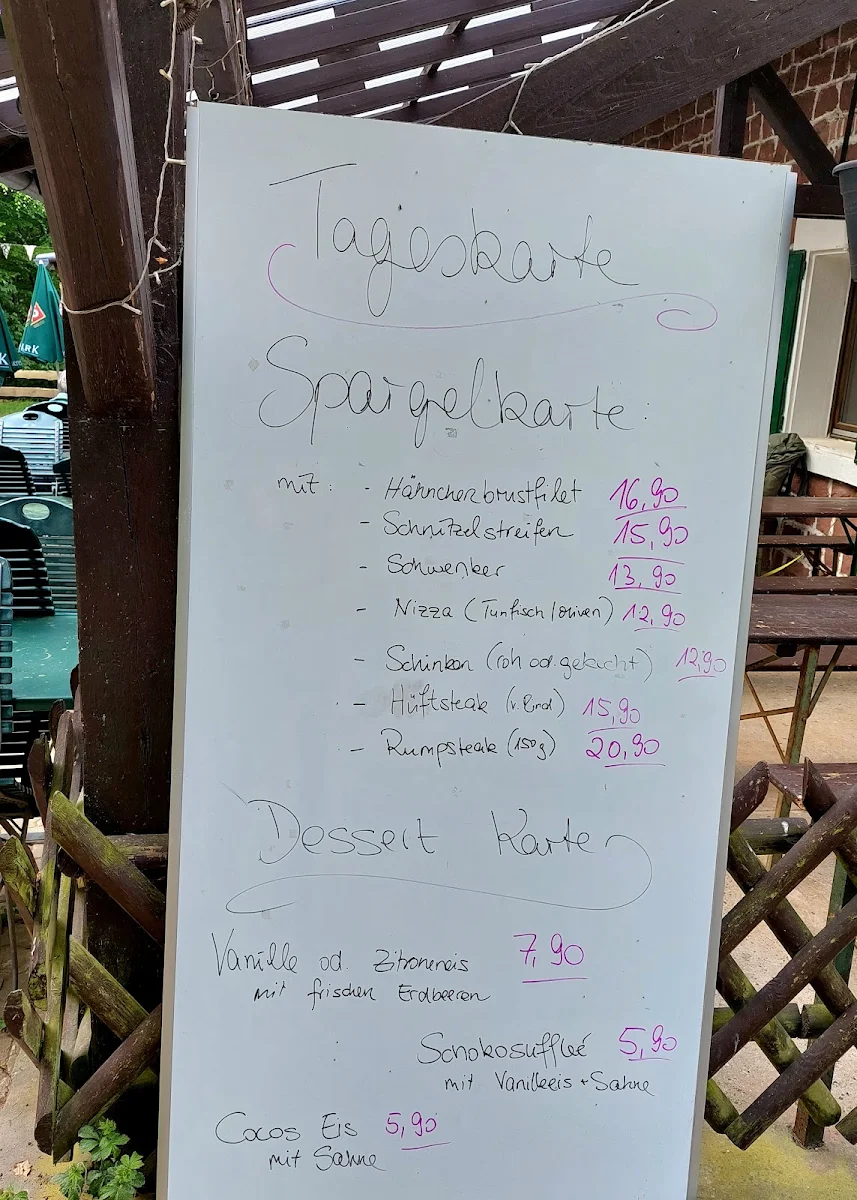 Tageskarte
Spargelkarte:
mit: - Hähnchenbrustfilet 16,90
- Schnitzelstreifen 15,90
- Schwenker 13,90
- Nizza (Tunfisch/oliven) 12,90
- Schinken (roh od. gekocht) 12,90
- Hüftsteak (v. Rind) 15,90
- Rumpsteak (150g) 20,90
Dessert Karte
Vanille od. Zitroneneis 7,90
mit frischen Erdbeeren
Schokosufflee 5,90
mit Vanilleeis + Sahne
Cocos Eis 5,90
mit Sahne